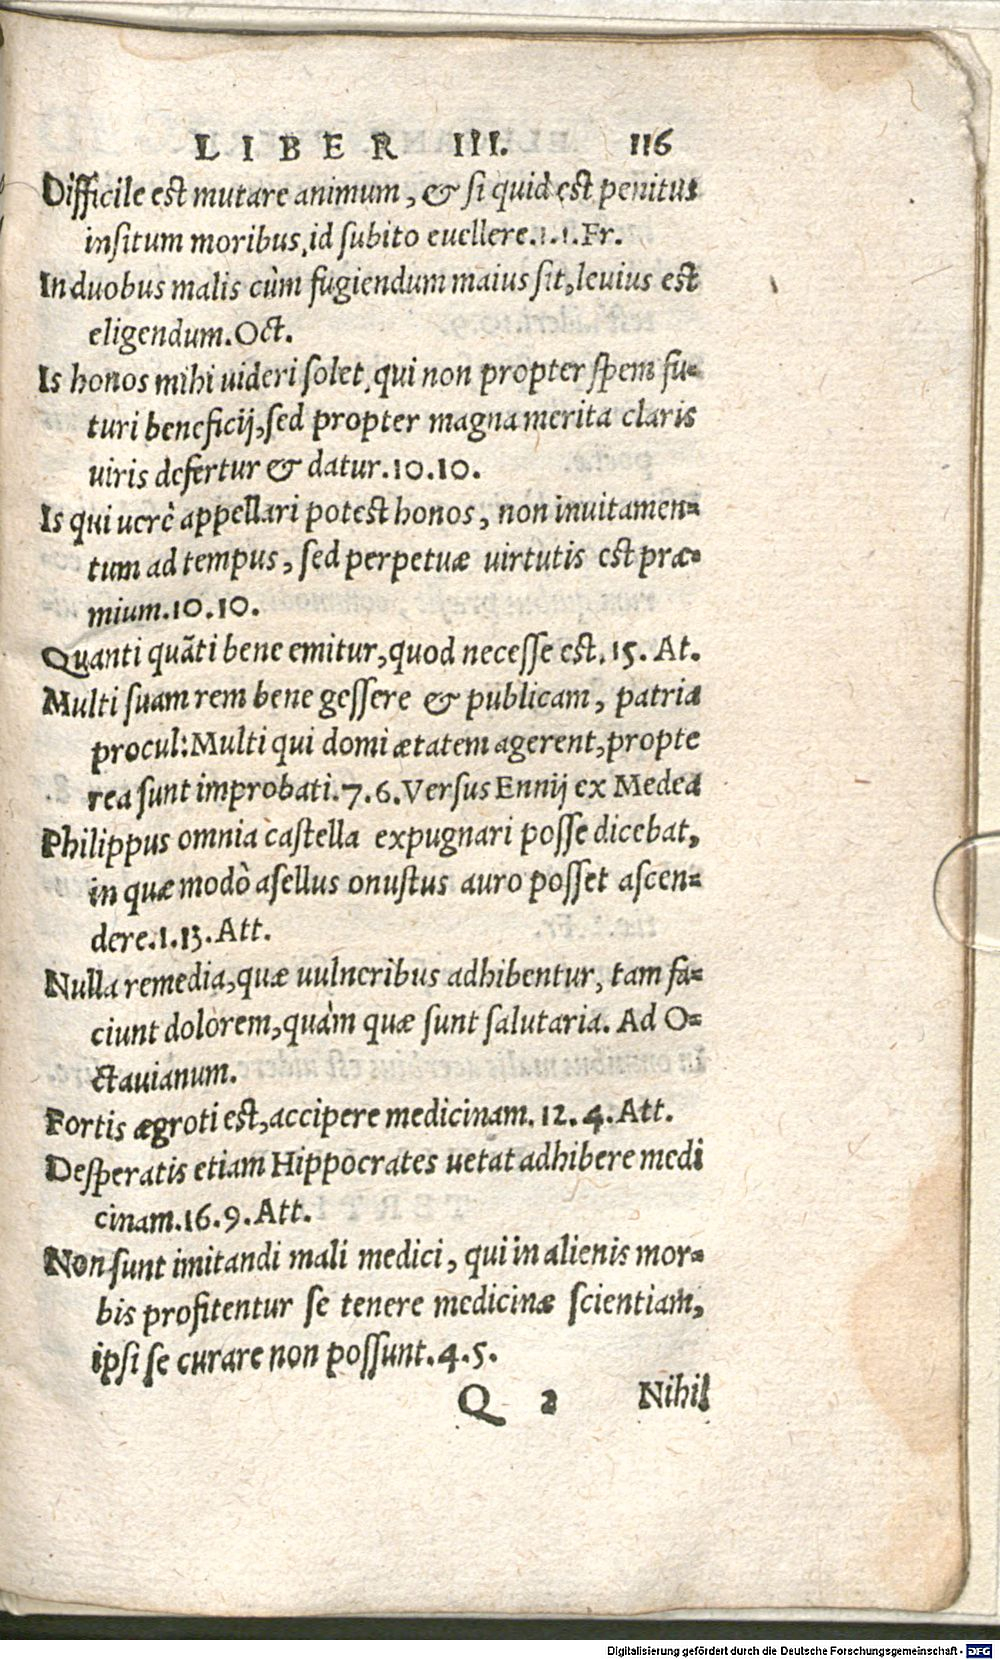 LIBER III. 116
Difficile est mutare animum, & si quid est penitus
insitum moribus, id subito euellere.1.1.Fr.
In duobus malis cùm fugiendum maius sit, leuius est
eligendum.Oct.
Is honos mihi uideri solet, qui non propter spem fu=
turi beneficij, sed propter magna merita claris
viris defertur & datur.10.10.
Is qui uerè appellari potest honos, non inuitamen=
tum ad tempus, sed perpetuæ virtutis est præ=
mium.10.10.
Quanti quãti bene emitur, quod necesse est. 15. At.
Multi suam rem bene gessere & publicam, patria
procul: Multi qui domi ætatem agerent, propte
rea sunt improbati.7.6. Versus Ennij ex Medea
Philippus omnia castella expugnari posse dicebat,
in quæ modò asellus onustus auro posset ascen=
dere.1.13.Att.
Nulla remedia, quæ uulneribus adhibentur, tam fa=
ciunt dolorem, quàm quæ sunt salutaria. Ad O=
ctauianum.
Fortis ægroti est, accipere medicinam. 12.4.Att.
Desperatis etiam Hippocrates uetat adhibere medi
cinam.16.9.Att.
Non sunt imitandi mali medici, qui in alienis mor=
bis profitentur se tenere medicinæ scientiam,
ipsi se curare non possunt.4.5.
Q 2 Nihil
Digitalisierung gefördert durch die Deutsche Forschungsgemeinschaft - DFG